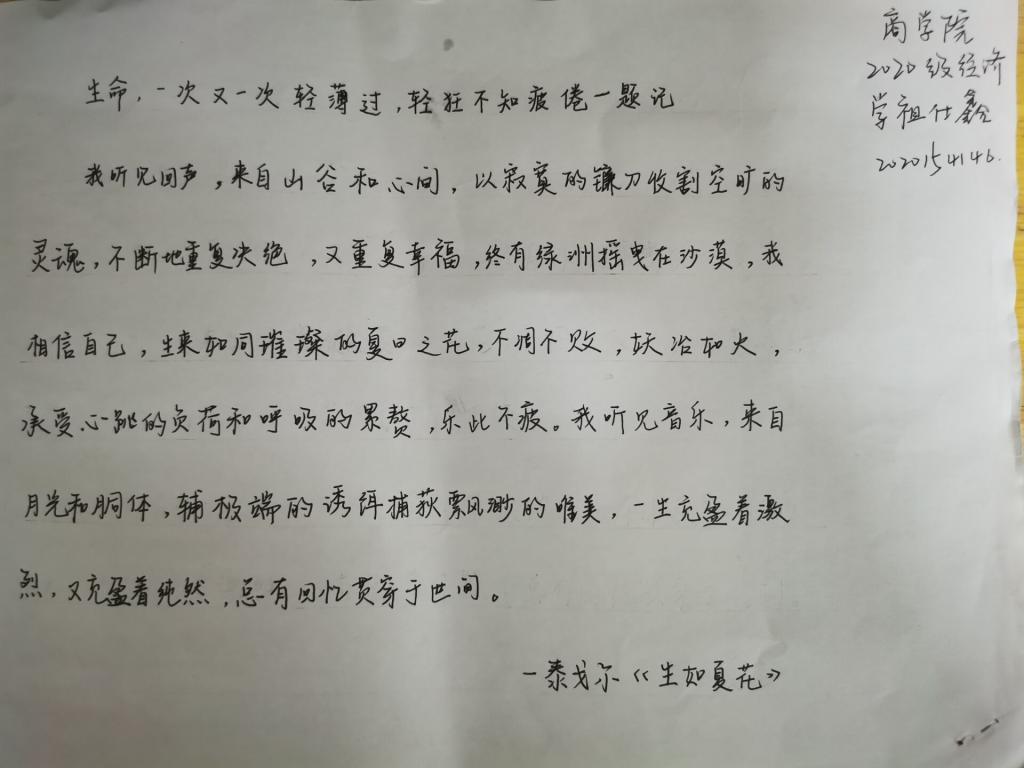 商学院
2020级经济
学祖仕鑫
2020154146.
生命,一次又一次轻薄过,轻狂不知疲倦一题记
我听见回声,来自山谷和心间,以寂寞的镰刀收割空旷的
灵魂,不断地重复决绝,又重复幸福,终有绿洲摇曳在沙漠,我
相信自己,生来如同璀璨的夏日之花,不凋不败,妖冶如火,
承受心跳的负荷和呼吸的累赘,乐此不疲。我听见音乐,来自
月光和胴体,辅极端的诱饵捕获飘渺的唯美,一生充盈着激
烈,又充盈着纯然,总有回忆贯穿于世间。
一泰戈尔《生如夏花》